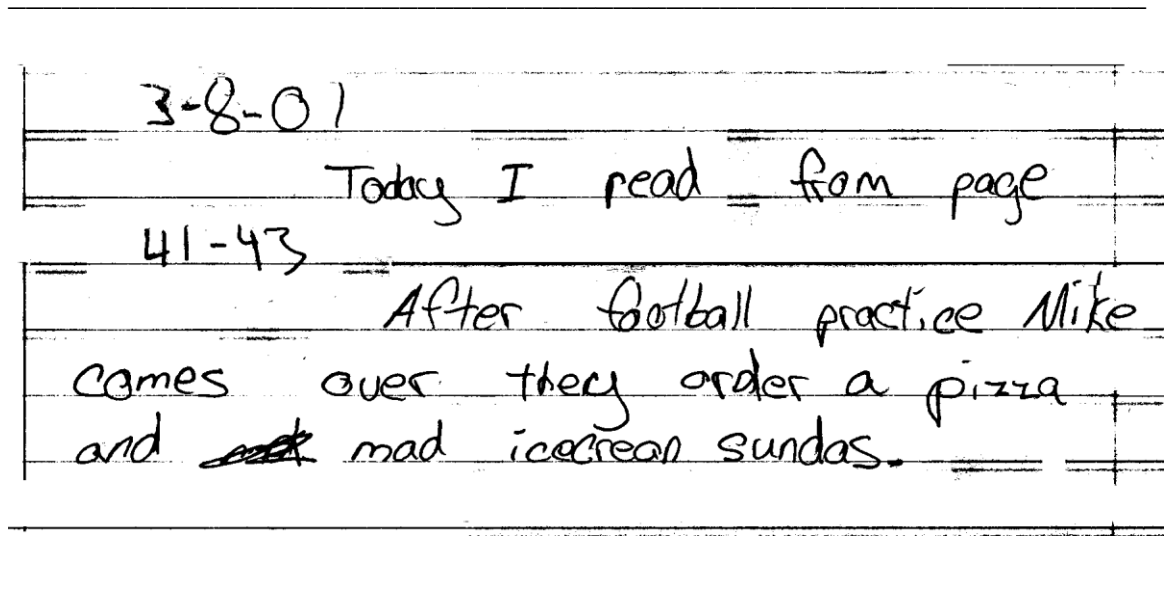 3-8-01
Today I read from page
41-43
After football practice Mike
comes over they order a pizza
and mad icecrean sundas.